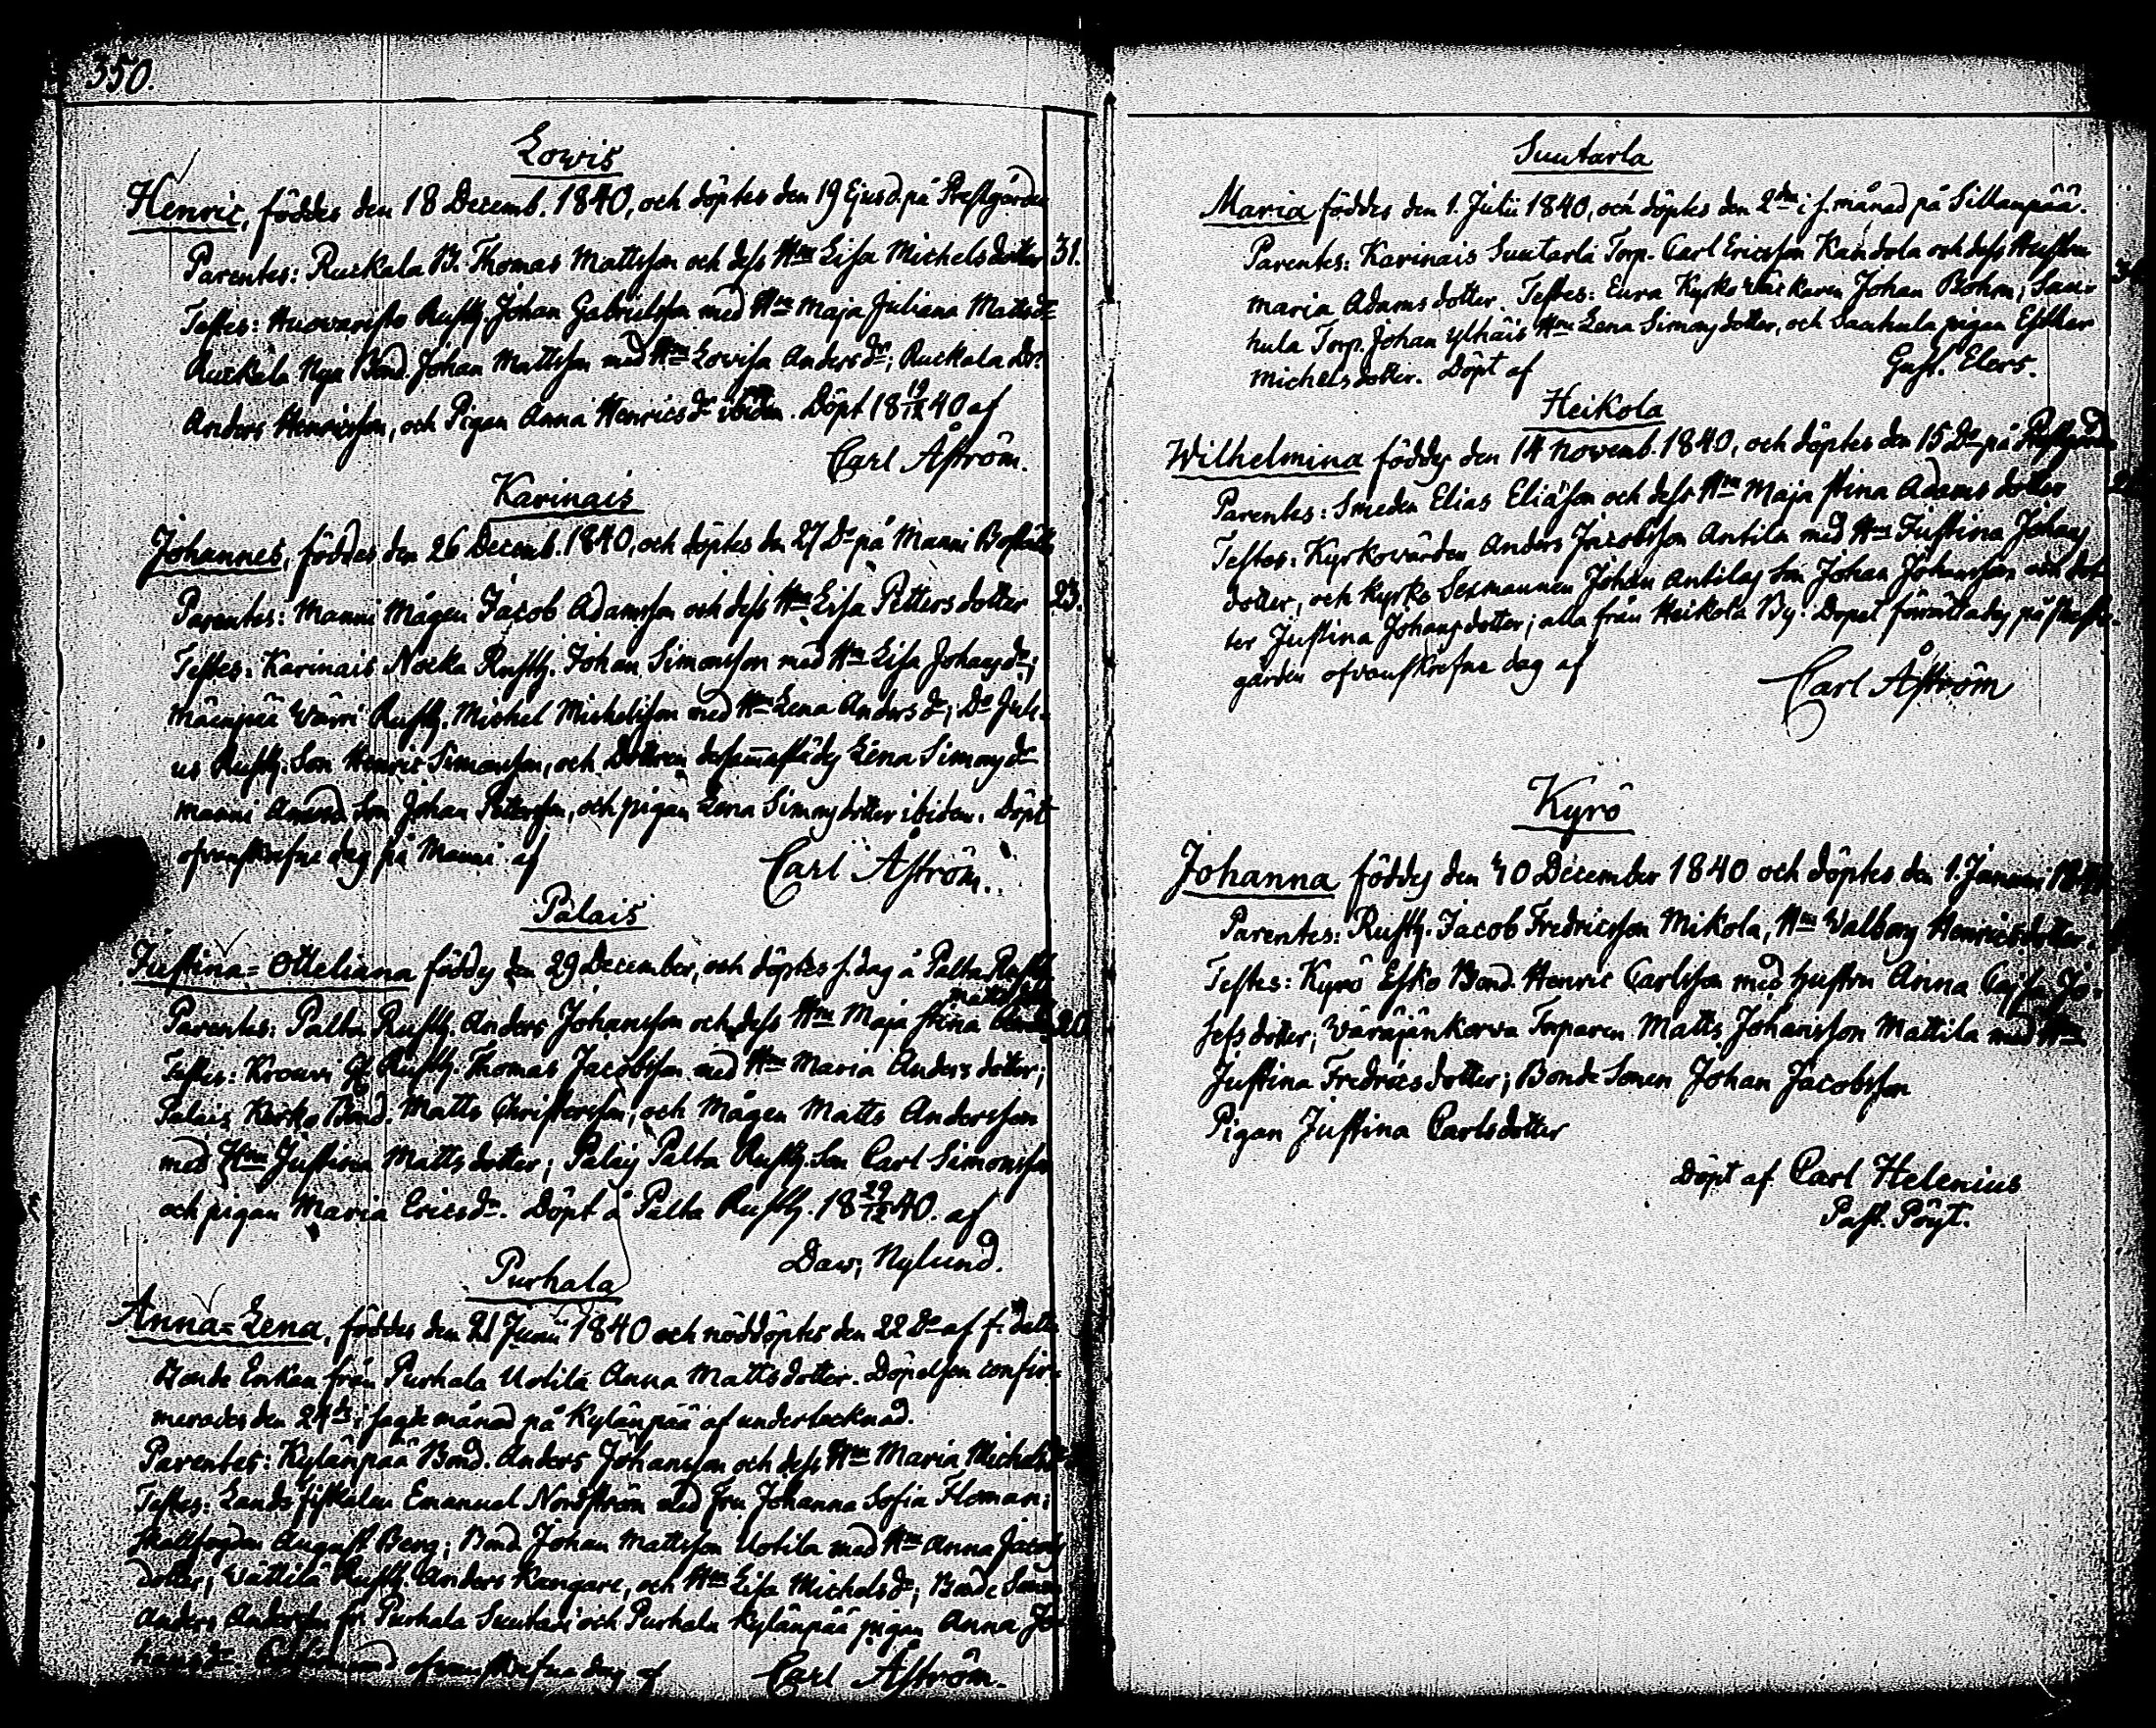 350.
Lowis
Henric, föddes den 18 Decemb. 1840, och döptes den 19 Ejusd. på Prestgården
Parentes: Ruckala B. Thomas Mattsson och dess Hru Lisa Michelsdotter 31.
Testes: Rusth. Johan Gabrielsson med Hru Maja Juliana Mattsdr
Ruckala Nya Bond. Johan Mattsson med Hru Lovisa Andersdr; Ruckala
Anders Henricsson, och Pigan Anna Henricsdr ibidem. Döpt 18 19/12 40 af
Carl Åström.
Karinais
Johannes, föddes den 26 Decemb. 1840, och döptes den 27 Do på Manni Boställe
Parentes: Manni Mågen Jacob Adamsson och dess Hru Lisa Pettersdotter 23.
Testes: Karinais Nocka Rusth. Johan Simonsson med Hru Lisa Johansdr;
Mäenpää Wärri Rusth. Michel Michelsson med Hru Lena Andersdr; Do Juh-
us Rusth. Son Henric Simonsson, och Dottren dersammastädes Lena Simonsdr
Manni Son Johan Pettersson, och pigan Lena Simonsdotter ibidem. Döpt
ofvanskrefne dag på Manni af
Carl Åström.
Palais
Justina=Otteliana föddes den 29 December, och döptes s. dag å Palta Rusth.
Matts
Parentes: Palta Rusth. Anders Johansson och dess Hru Maja Stina 20.
Testes: Krouvi Gl. Rusth. Thomas Jacobsson med Hru Maria Andersdotter;
Palais Kirko Bond. Matts Christersson, och Mågen Matts Andersson
med Hru Justina Mattsdotter; Palais Palta Rusth. Son Carl Simonsson
och pigan Maria Ericsdr. Döpt å Palta Rusth. 18 29/12 40. af
Dav; Nylund.
Purhala
Anna=Lena, föddes den 21 Junii 1840 och nöddöptes den 22 Do af f. detta
Bonde Enkan från Purhala Uotila Anna Mattsdotter. Döpelsen confir-
merades den 24de i sagde månad på Kylänpää af undertecknad.
Parentes: Kylänpää Bond. Anders Johansson och dess Hru Maria Michelsdr
Testes: Lands fiskalen Emanuel Nordström med Fru Johanna Sofia Floman;
Skattfogden August Berg; Bond. Johan Mattsson Uotila med Hru Anna Jacobs
dotter; Wättilä Rusth. Anders Kangare, och Hru Lisa Michelsdr; Bonde Sonen
Anders Andersson fr. Purhala Suutari och Purhala Kylänpää pigan Anna Jo-
hansdr. ofvanskrefne dag af
Carl Åström.
Suutarla
Maria föddes den 1. Julii 1840, och döptes den 2dra i s. månad på Sillanpää.
Parentes: Karinais Suutarla Torp. Carl Ericsson Kandola och dess Hustru
Maria Adamsdotter. Testes: Eura Kyrko Johan Bohm; Sau-
hula Torp. Johan Ylhäis Hru Lena Simonsdotter, och Sauhula pigan Esther
Michelsdotter. Döpt af
Gust. Elers.
Heikola
Wilhelmina föddes den 14 Novemb. 1840, och döptes den 15 Do på Prestgården
Parentes: Smeden Elias Eliasson och dess Hru Maja Stina Adamsdotter
Testes: Kyrkovärden Anders Jacobsson Antila med Hru Justina Johans
dotter, och Kyrko Sexmannen Johan Antilas Son Johan Johansson och dot-
ter Justina Johansdotter; alla från Heikola By. Dopet förrättades på Prest-
gården ofvanskrefne dag af
Carl Åström
Kyrö
Johanna föddes den 30 December 1840 och döptes den 1. Januari 1841
Parentes: Rusth. Jacob Fredricsson Mikola, Hru Walborg Henricsdotter.
Testes: Kyrö Esko Bond. Henric Carlsson med hustru Anna Cajsa Jo-
sefsdotter; Wäräjänkorva Torparen Matts Johansson Mattila med Hru
Justina Fredricsdotter; Bonde Sonen Johan Jacobsson
Pigan Justina Carlsdotter
Döpt af Carl Helenius
Past. Pöyt.